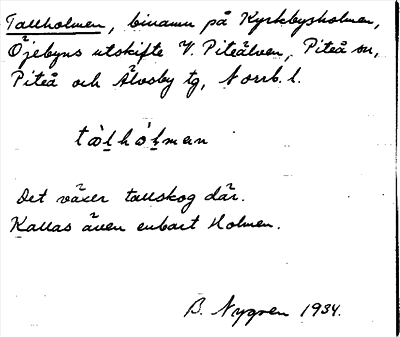 Tallholmen, binamn på Kyrkbysholmen,
Öjebyns utskifte V. Piteälven, Piteå sn,
Piteå och Älvsby tg, Norrb. l.
tàl̠hól̠man
Det växer tallskog där.
Kallas även enbart Holmen.
B. Nygren 1934.